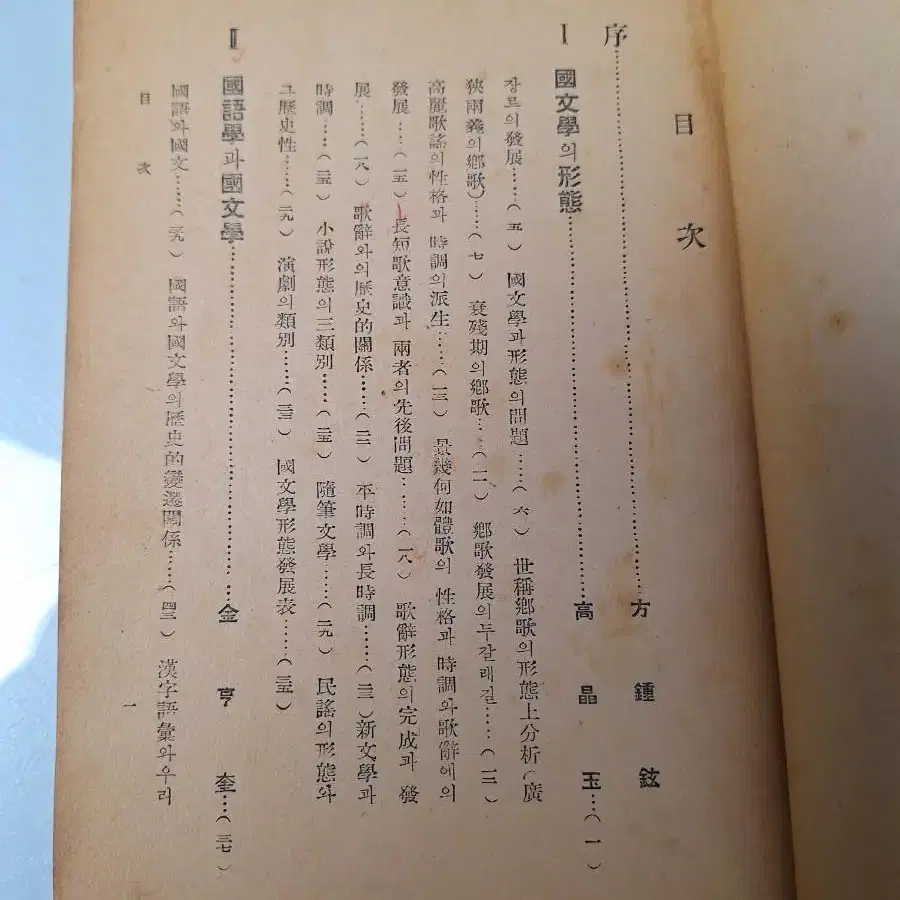 目 次
序……方 鍾 鉉
I 國文學의 形態……高 晶 玉…(一)
장르의 發展……(五) 國文學과 形態의 問題……(六) 世稱鄕歌의 形態上分析(廣
狹兩義의 鄕歌)……(七) 衰殘期의 鄕歌……(一一) 鄕歌發展의 두갈래길……(一二)
高麗歌謠의 性格과 時調의 派生……(一三) 景幾何如體歌의 性格과 時調와 歌辭에의
發展……(一五) 長短歌意識과 兩者의 先後問題……(一八) 歌辭形態의 完成과 發
展……(一八) 歌辭와의 歷史的關係……(二二) 平時調와 長時調……(二三) 新文學과
時調……(二五) 小說形態의 三類別……(二五) 隨筆文學……(二九) 民謠의 形態와
그 歷史性……(二九) 演劇의 類別……(三三) 國文學形態發展表……(三五)
II 國語學과 國文學……金 亨 奎…(三七)
國語와 國文……(三九) 國語와 國文學의 歷史的變遷關係……(四三) 漢字語彙와 우리
目 次
一